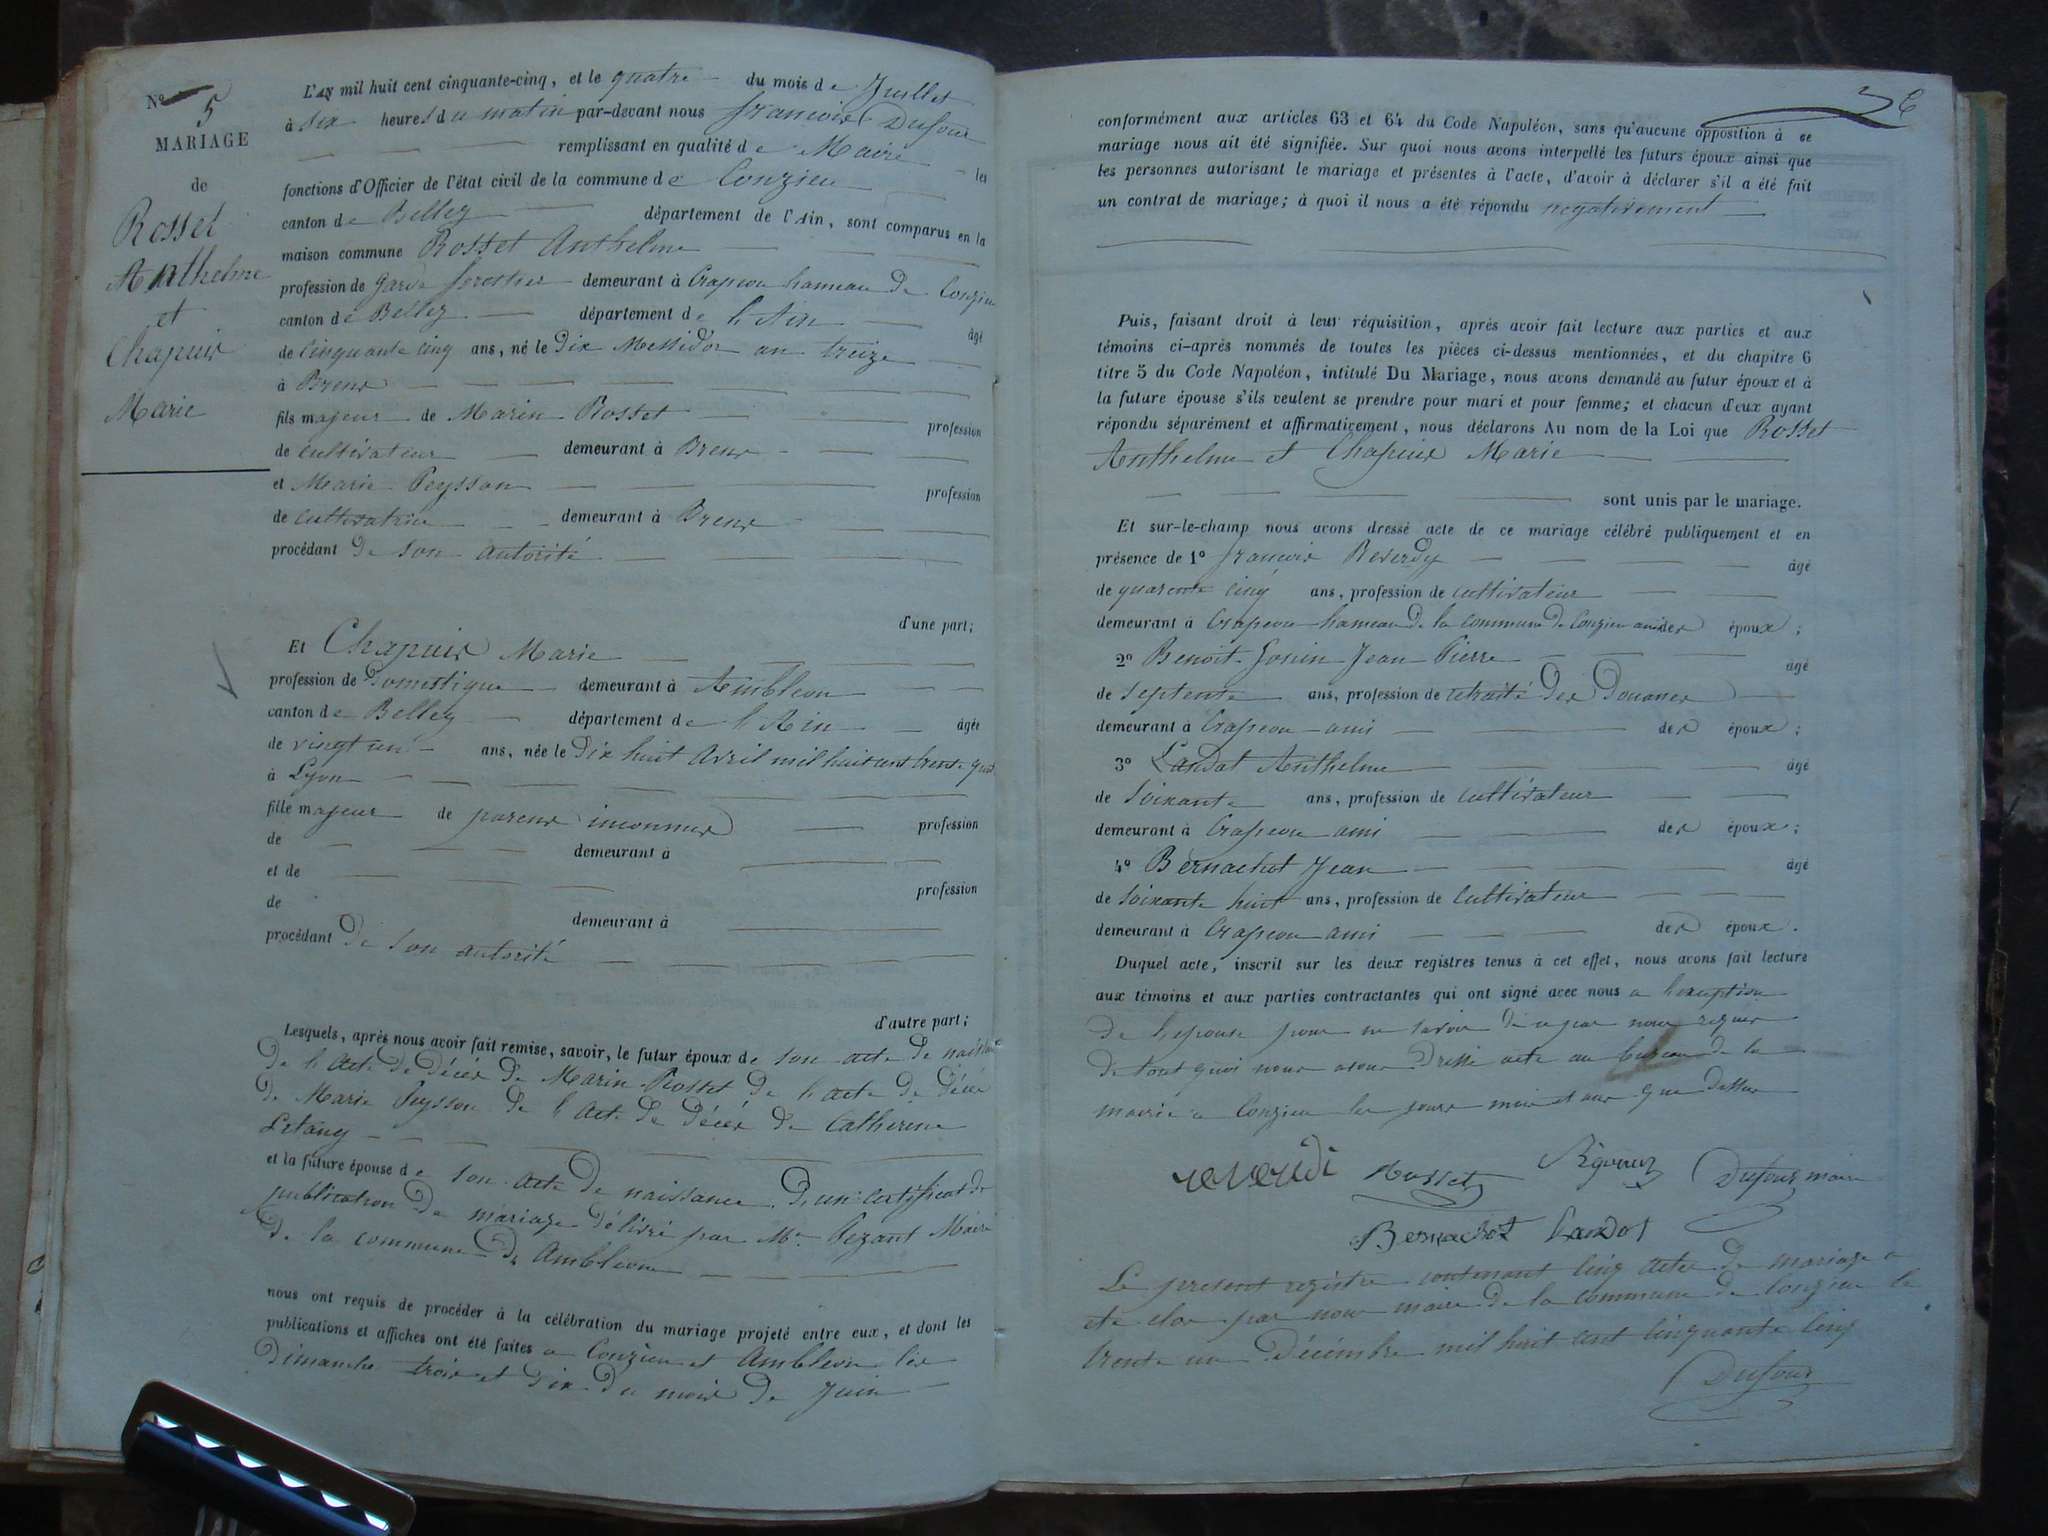 No 5
MARIAGE
de
Rosset
Anthelme
et
Chapuis
Marie
L'AN mil huit cent cinquante-cinq, et le quatre du mois de Juillet
à six heures du matin par-devant nous françois Dufour
remplissant en qualité de Maire les
fonctions d'Officier de l'état civil de la commune de Conzieu
canton de Belley département de l'Ain, sont comparus en la
maison commune Rosset Anthelme
profession de garde forestier demeurant à Crapeou hameau de Conzieu
canton de Belley département de l'Ain âgé
de cinquante cinq ans, né le dix Messidor an treize
à Brens
fils majeur de Marin Rosset profession
de cultivateur demeurant à Brens
et Marie Peysson profession
de cultivatrice demeurant à Brens
procédant de son autorité
d'une part;
Et Chapuis Marie
profession de domestique demeurant à Ambleon
canton de Belley département de l'Ain âgée
de vingt un ans, née le dix huit avril mil huit cent trente quat
à Lyon
fille majeur de parens inconnus profession
de demeurant à
et de profession
de demeurant à
procédant de son autorité
d'autre part;
Lesquels, après nous avoir fait remise, savoir, le futur époux de son acte de naissance
de l'acte de décès de Marin Rosset de l'acte de décès
de Marie Peysson de l'acte de décès de Catherine
Letang
et la future épouse de son acte de naissance d'un certificat de
publication de mariage délivré par Mr Pezant Maire
de la commune de Ambleon
nous ont requis de procéder à la célébration du mariage projeté entre eux, et dont les
publications et affiches ont été faites a Conzieu et Ambleon les
dimanche trois et dix du mois de Juin
conformément aux articles 63 et 64 du Code Napoléon, sans qu'aucune opposition à ce
mariage nous ait été signifiée. Sur quoi nous avons interpellé les futurs époux ainsi que
les personnes autorisant le mariage et présentes à l'acte, d'avoir à déclarer s'il a été fait
un contrat de mariage; à quoi il nous a été répondu negativement
Puis, faisant droit à leur réquisition, après avoir fait lecture aux parties et aux
témoins ci-après nommés de toutes les pièces ci-dessus mentionnées, et du chapitre 6
titre 5 du Code Napoléon, intitulé Du Mariage, nous avons demandé au futur époux et à
la future épouse s'ils veulent se prendre pour mari et pour femme; et chacun d'eux ayant
répondu séparément et affirmativement, nous déclarons Au nom de la Loi que Rosset
Anthelme et Chapuis Marie
sont unis par le mariage.
Et sur-le-champ nous avons dressé acte de ce mariage célébré publiquement et en
présence de 1o françois Reverdy âgé
de quarente cinq ans, profession de cultivateur
demeurant à Crapeou hameau de la commune de Conzieu ami des époux;
2o Benoit Jonin Jean Pierre âgé
de septente ans, profession de retraité des Douanes
demeurant à Crapeou ami des époux;
3o Landot Anthelme âgé
de soixante ans, profession de cultivateur
demeurant à Crapeou ami des époux;
4o Bernachot Jean âgé
de soixante huit ans, profession de cultivateur
demeurant à Crapeou ami des époux.
Duquel acte, inscrit sur les deux registres tenus à cet effet, nous avons fait lecture
aux témoins et aux parties contractantes qui ont signé avec nous a l'exception
de l'epouse pour ne savoir de ce par nous requis
de tout quoi nous avons dressé acte au bureau de la
mairie a Conzieu les jours mois et an que dessus
reverdi Rosset Dufour maire
Bernachot Landot
Le present registre contenant cinq actes de mariage a
ete clos par nous maire de la commune de Conzieu le
trente un Décembre mil huit cent cinquante cinq
Dufour